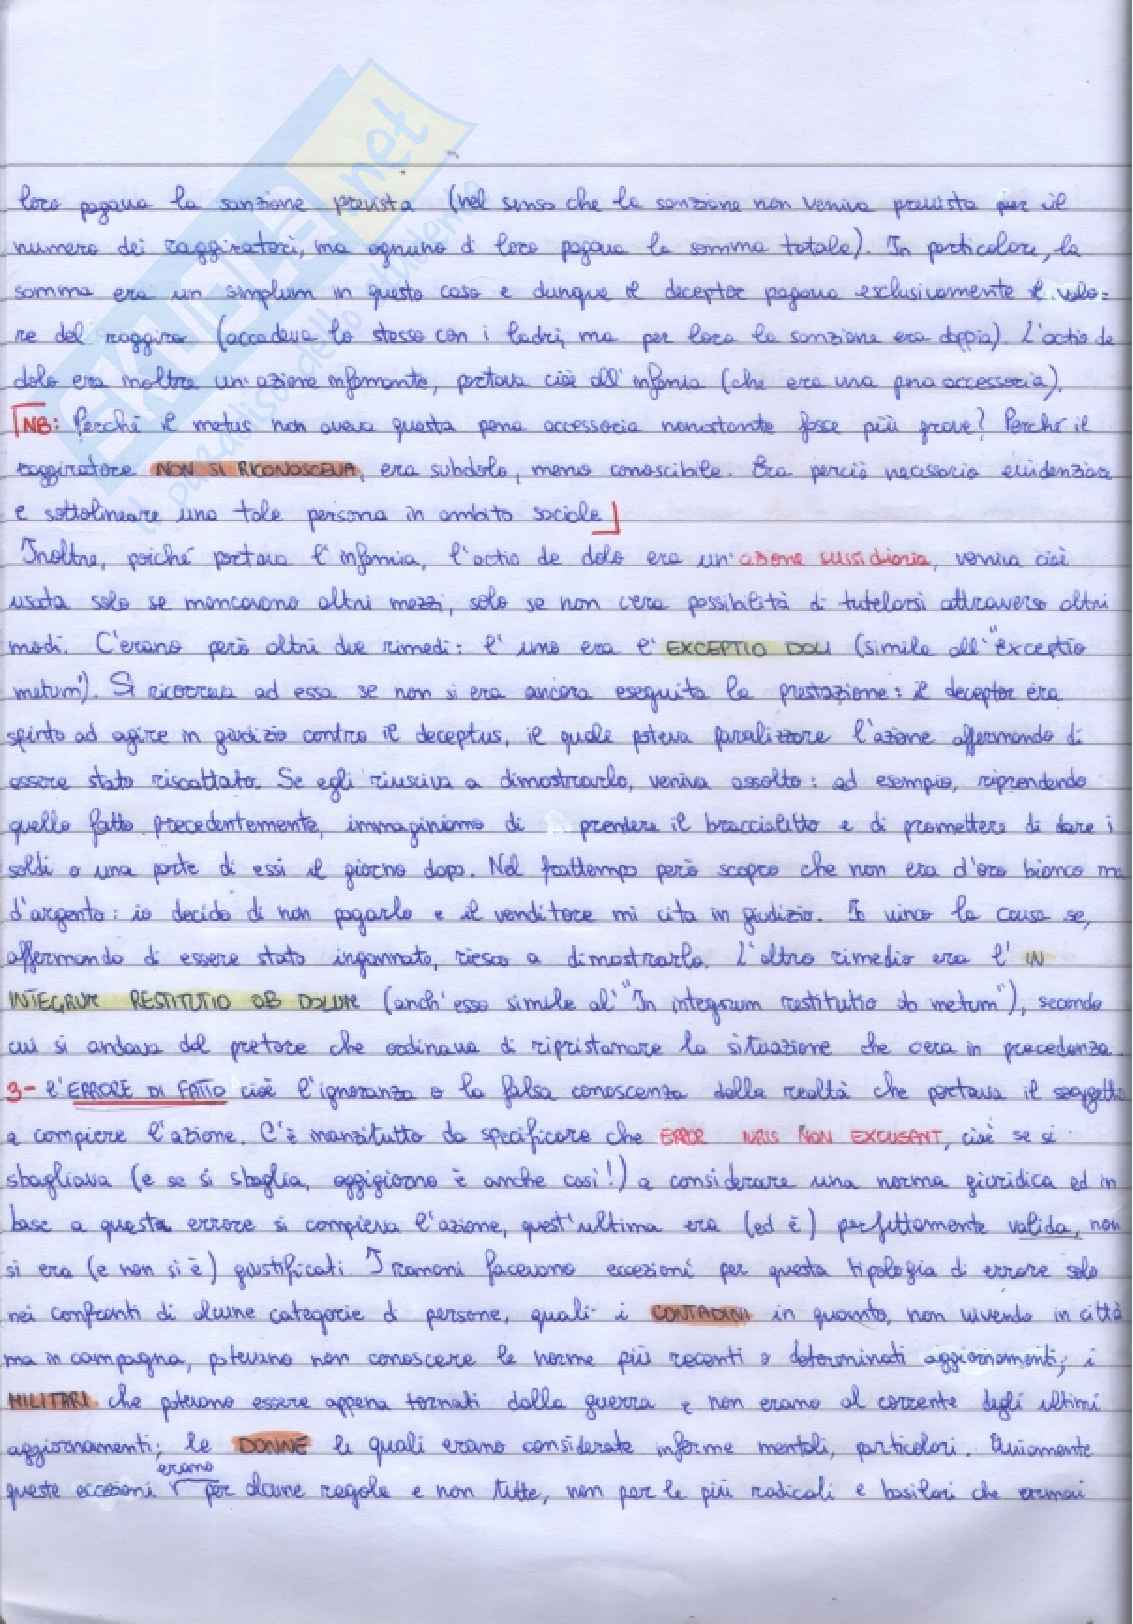 SKUOLA.net
il paradiso dello studente
loro pagava la sanzione prevista (nel senso che la sanzione non veniva prevista per il
numero dei raggiratori, ma ognuno d loro pagava la somma totale). In particolare, la
somma era un simplum in questo caso e dunque il deceptor pagava exclusivamente il valo=
re del raggiro (accadeva lo stesso con i ladri, ma per loro la sanzione era doppia). L'actio de
dolo era inoltre un'azione infamante, portava cioè all'infamia (che era una pena accessoria).
NB: Perché il metus non aveva questa pena accessoria nonostante fosse più grave? Perché il
raggiratore NON SI RICONOSCEVA, era subdolo, meno conoscibile. Era perciò necessario evidenziare
e sottolineare una tale persona in ambito sociale
Inoltre, poiché portava l'infamia, l'actio de dolo era un'azione sussidiaria, veniva cioè
usata solo se mancavano altri mezzi, solo se non c'era possibilità di tutelarsi attraverso altri
modi. C'erano però altri due rimedi: l'uno era l'EXCEPTIO DOLI (simile all'"exceptio
metum"). Si ricorreva ad essa se non si era ancora eseguita la prestazione: il deceptor era
spinto ad agire in giudizio contro il deceptus, il quale poteva paralizzare l'azione affermando di
essere stato riscattato. Se egli riusciva a dimostrarlo, veniva assolto: ad esempio, riprendendo
quello fatto precedentemente, immaginiamo di prendere il braccialetto e di promettere di dare i
soldi o una parte di essi il giorno dopo. Nel frattempo però scopro che non era d'oro bianco ma
d'argento: io decido di non pagarlo e il venditore mi cita in giudizio. Io vinco la causa se,
affermando di essere stato ingannato, riesco a dimostrarlo. L'altro rimedio era l'IN
INTEGRUM RESTITUTIO OB DOLUM (anch'esso simile al'"In integrum restitutio ob metum"), secondo
cui si andava dal pretore che ordinava di ripristinare la situazione che c'era in precedenza.
3- l'ERRORE DI FATTO cioè l'ignoranza o la falsa conoscenza della realtà che portava il soggetto
a compiere l'azione. C'è innanzitutto da specificare che ERROR IURIS NON EXCUSANT, cioè se si
sbagliava (e se si sbaglia, oggigiorno è anche così!) a considerare una norma giuridica ed in
base a questo errore si compieva l'azione, quest'ultima era (ed è) perfettamente valida, non
si era (e non si è) giustificati. I romani facevano eccezioni per questa tipologia di errore solo
nei confronti di alcune categorie d persone, quali i CONTADINI in quanto, non vivendo in città
ma in campagna, potevano non conoscere le norme più recenti o determinati aggiornamenti; i
MILITARI che potevano essere appena tornati dalla guerra e non erano al corrente degli ultimi
aggiornamenti; le DONNE le quali erano considerate inferme mentali, particolari. Ovviamente
queste eccezioni erano per alcune regole e non tutte, non per le più radicali e basilari che ormai